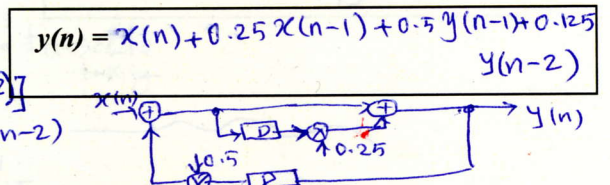 y(n) = x(n)+0.25 x(n-1)+0.5 y(n-1)+0.125
y(n-2)
2)]
n-2)
x(n)
+
+
y(n)
D
0.25
0.5
D